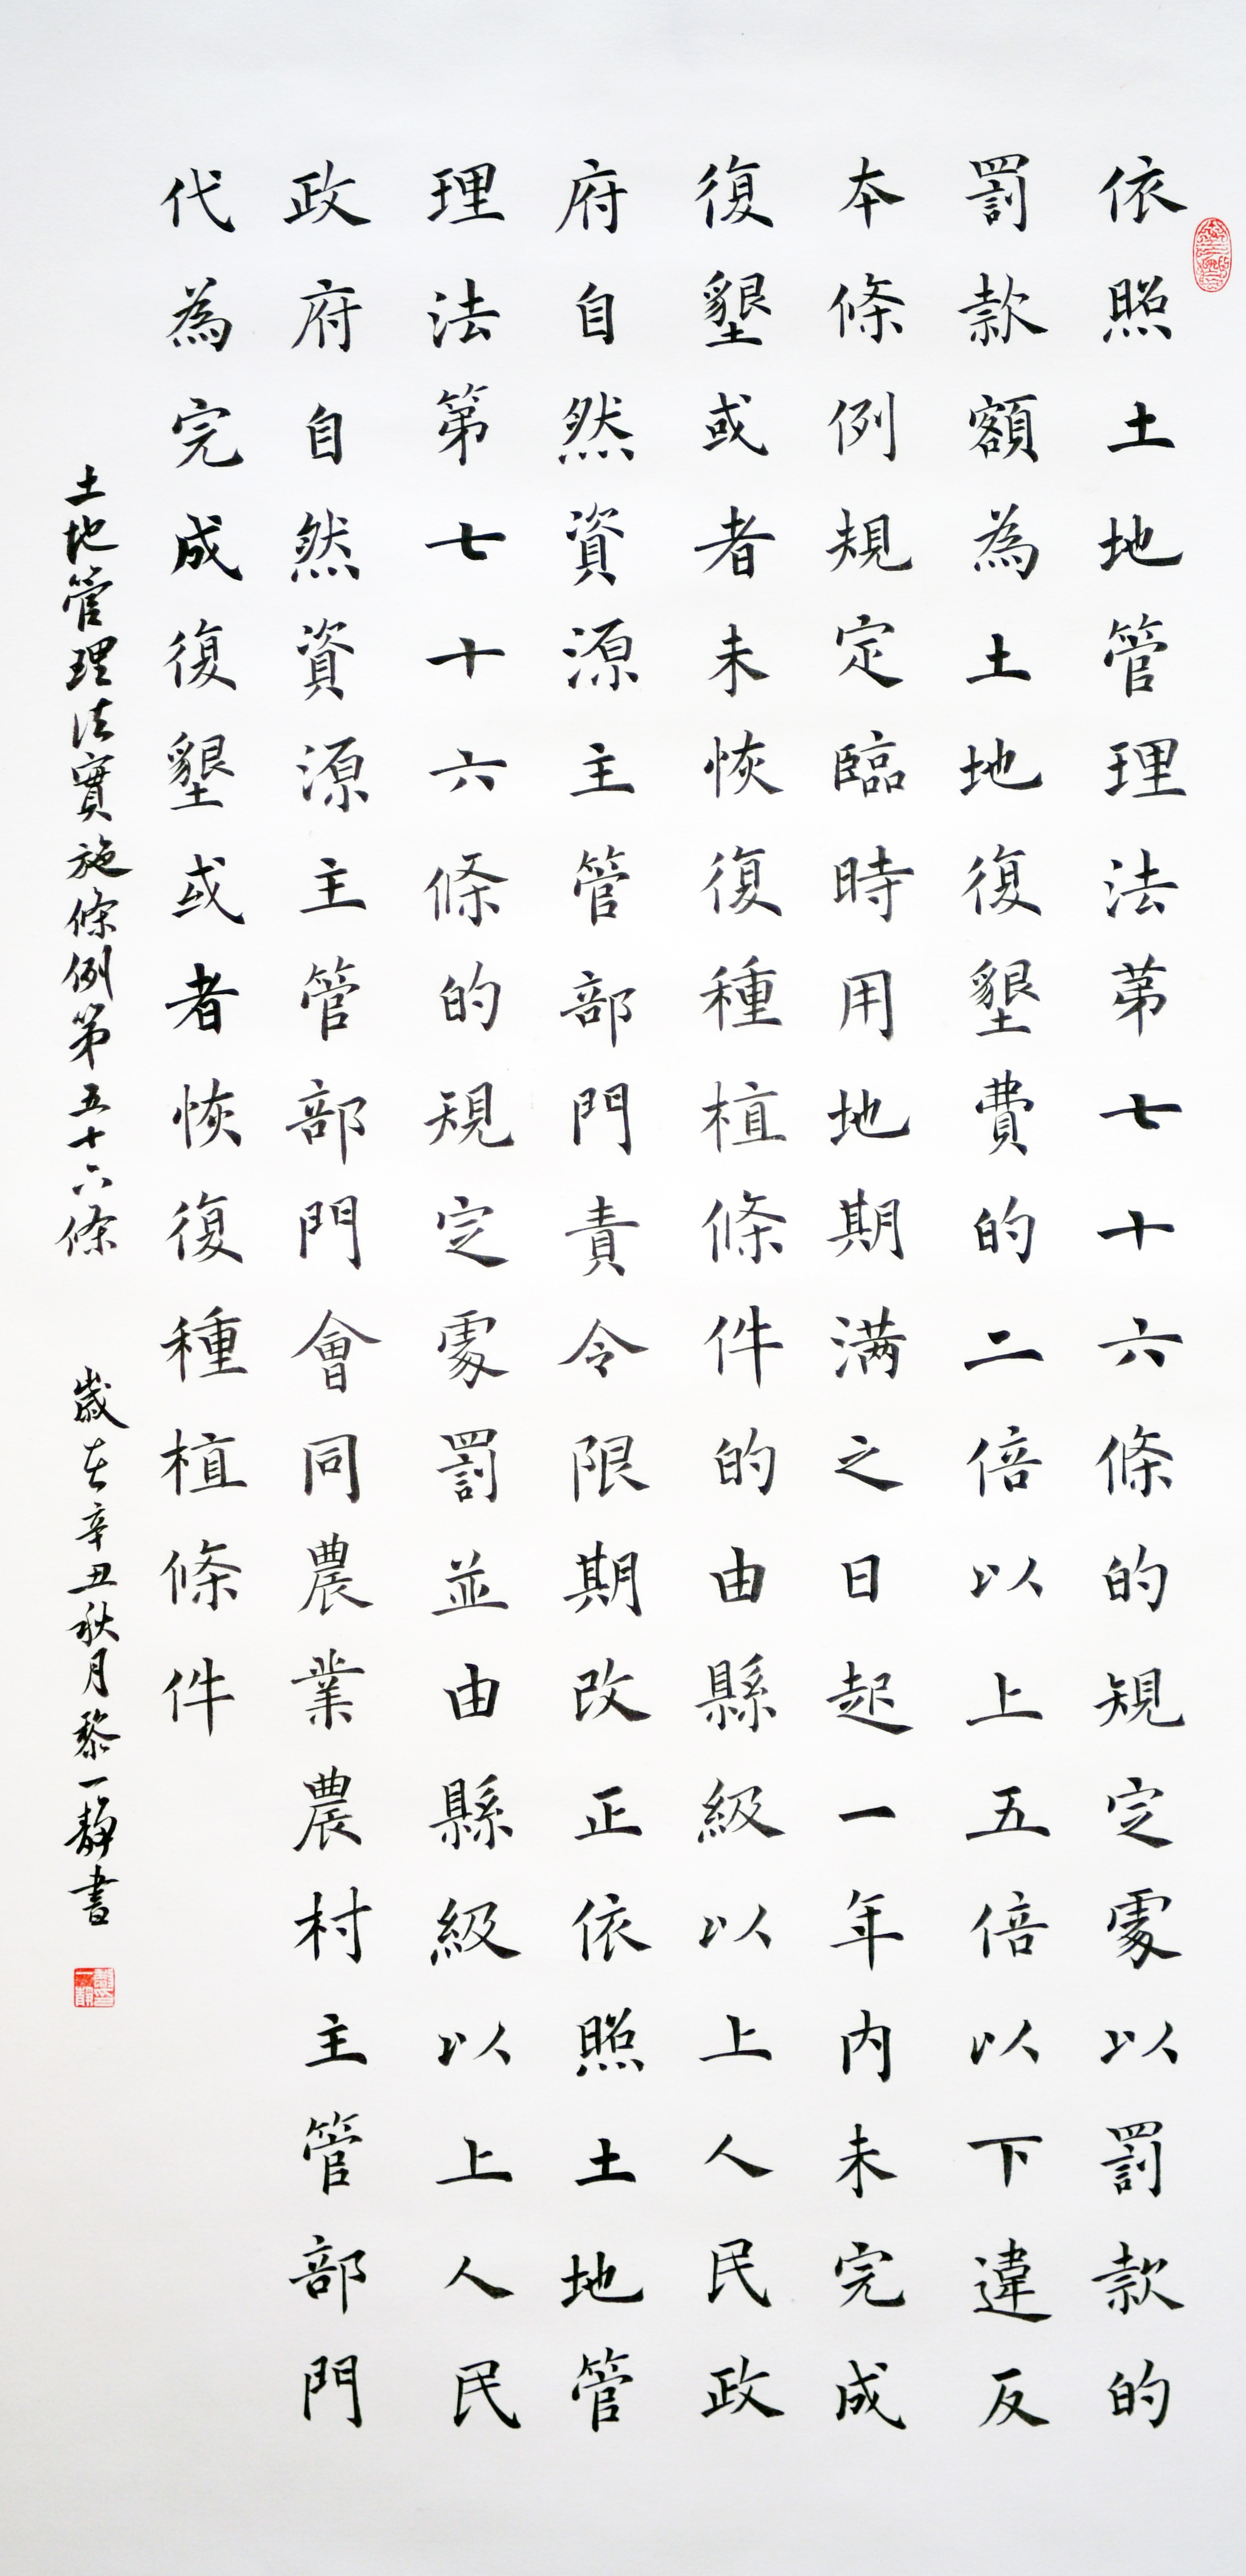 依照土地管理法第七十六條的規定處以罰款的
罰款額為土地復墾費的二倍以上五倍以下違反
本條例規定臨時用地期满之日起一年內未完成
復墾或者未恢復種植條件的由縣級以上人民政
府自然資源主管部門責令限期改正依照土地管
理法第七十六條的規定處罰並由縣級以上人民
政府自然資源主管部門會同農業農村主管部門
代為完成復墾或者恢復種植條件
土地管理法實施條例第五十六條 歲在辛丑秋月黎一靜書